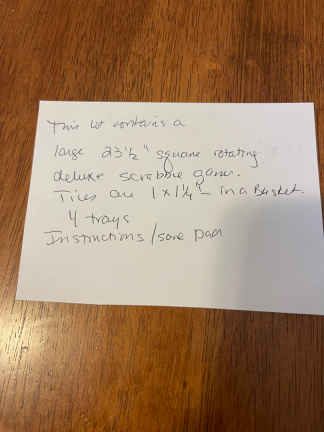 This lot contains a
large 23 1/2" square rotating
deluxe scrabble game.
Tiles are 1 x 1 1/4" - in a Basket.
4 trays
Instructions / score pad